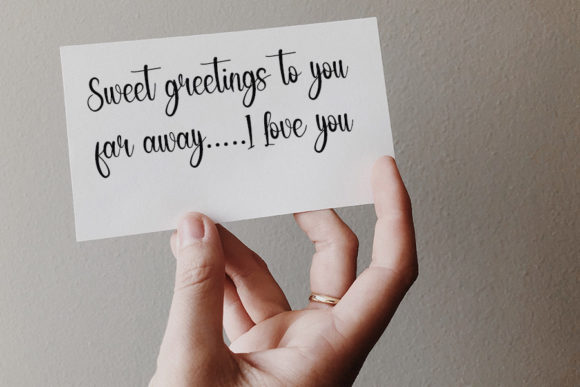 Sweet greetings to you
far away.....I love you